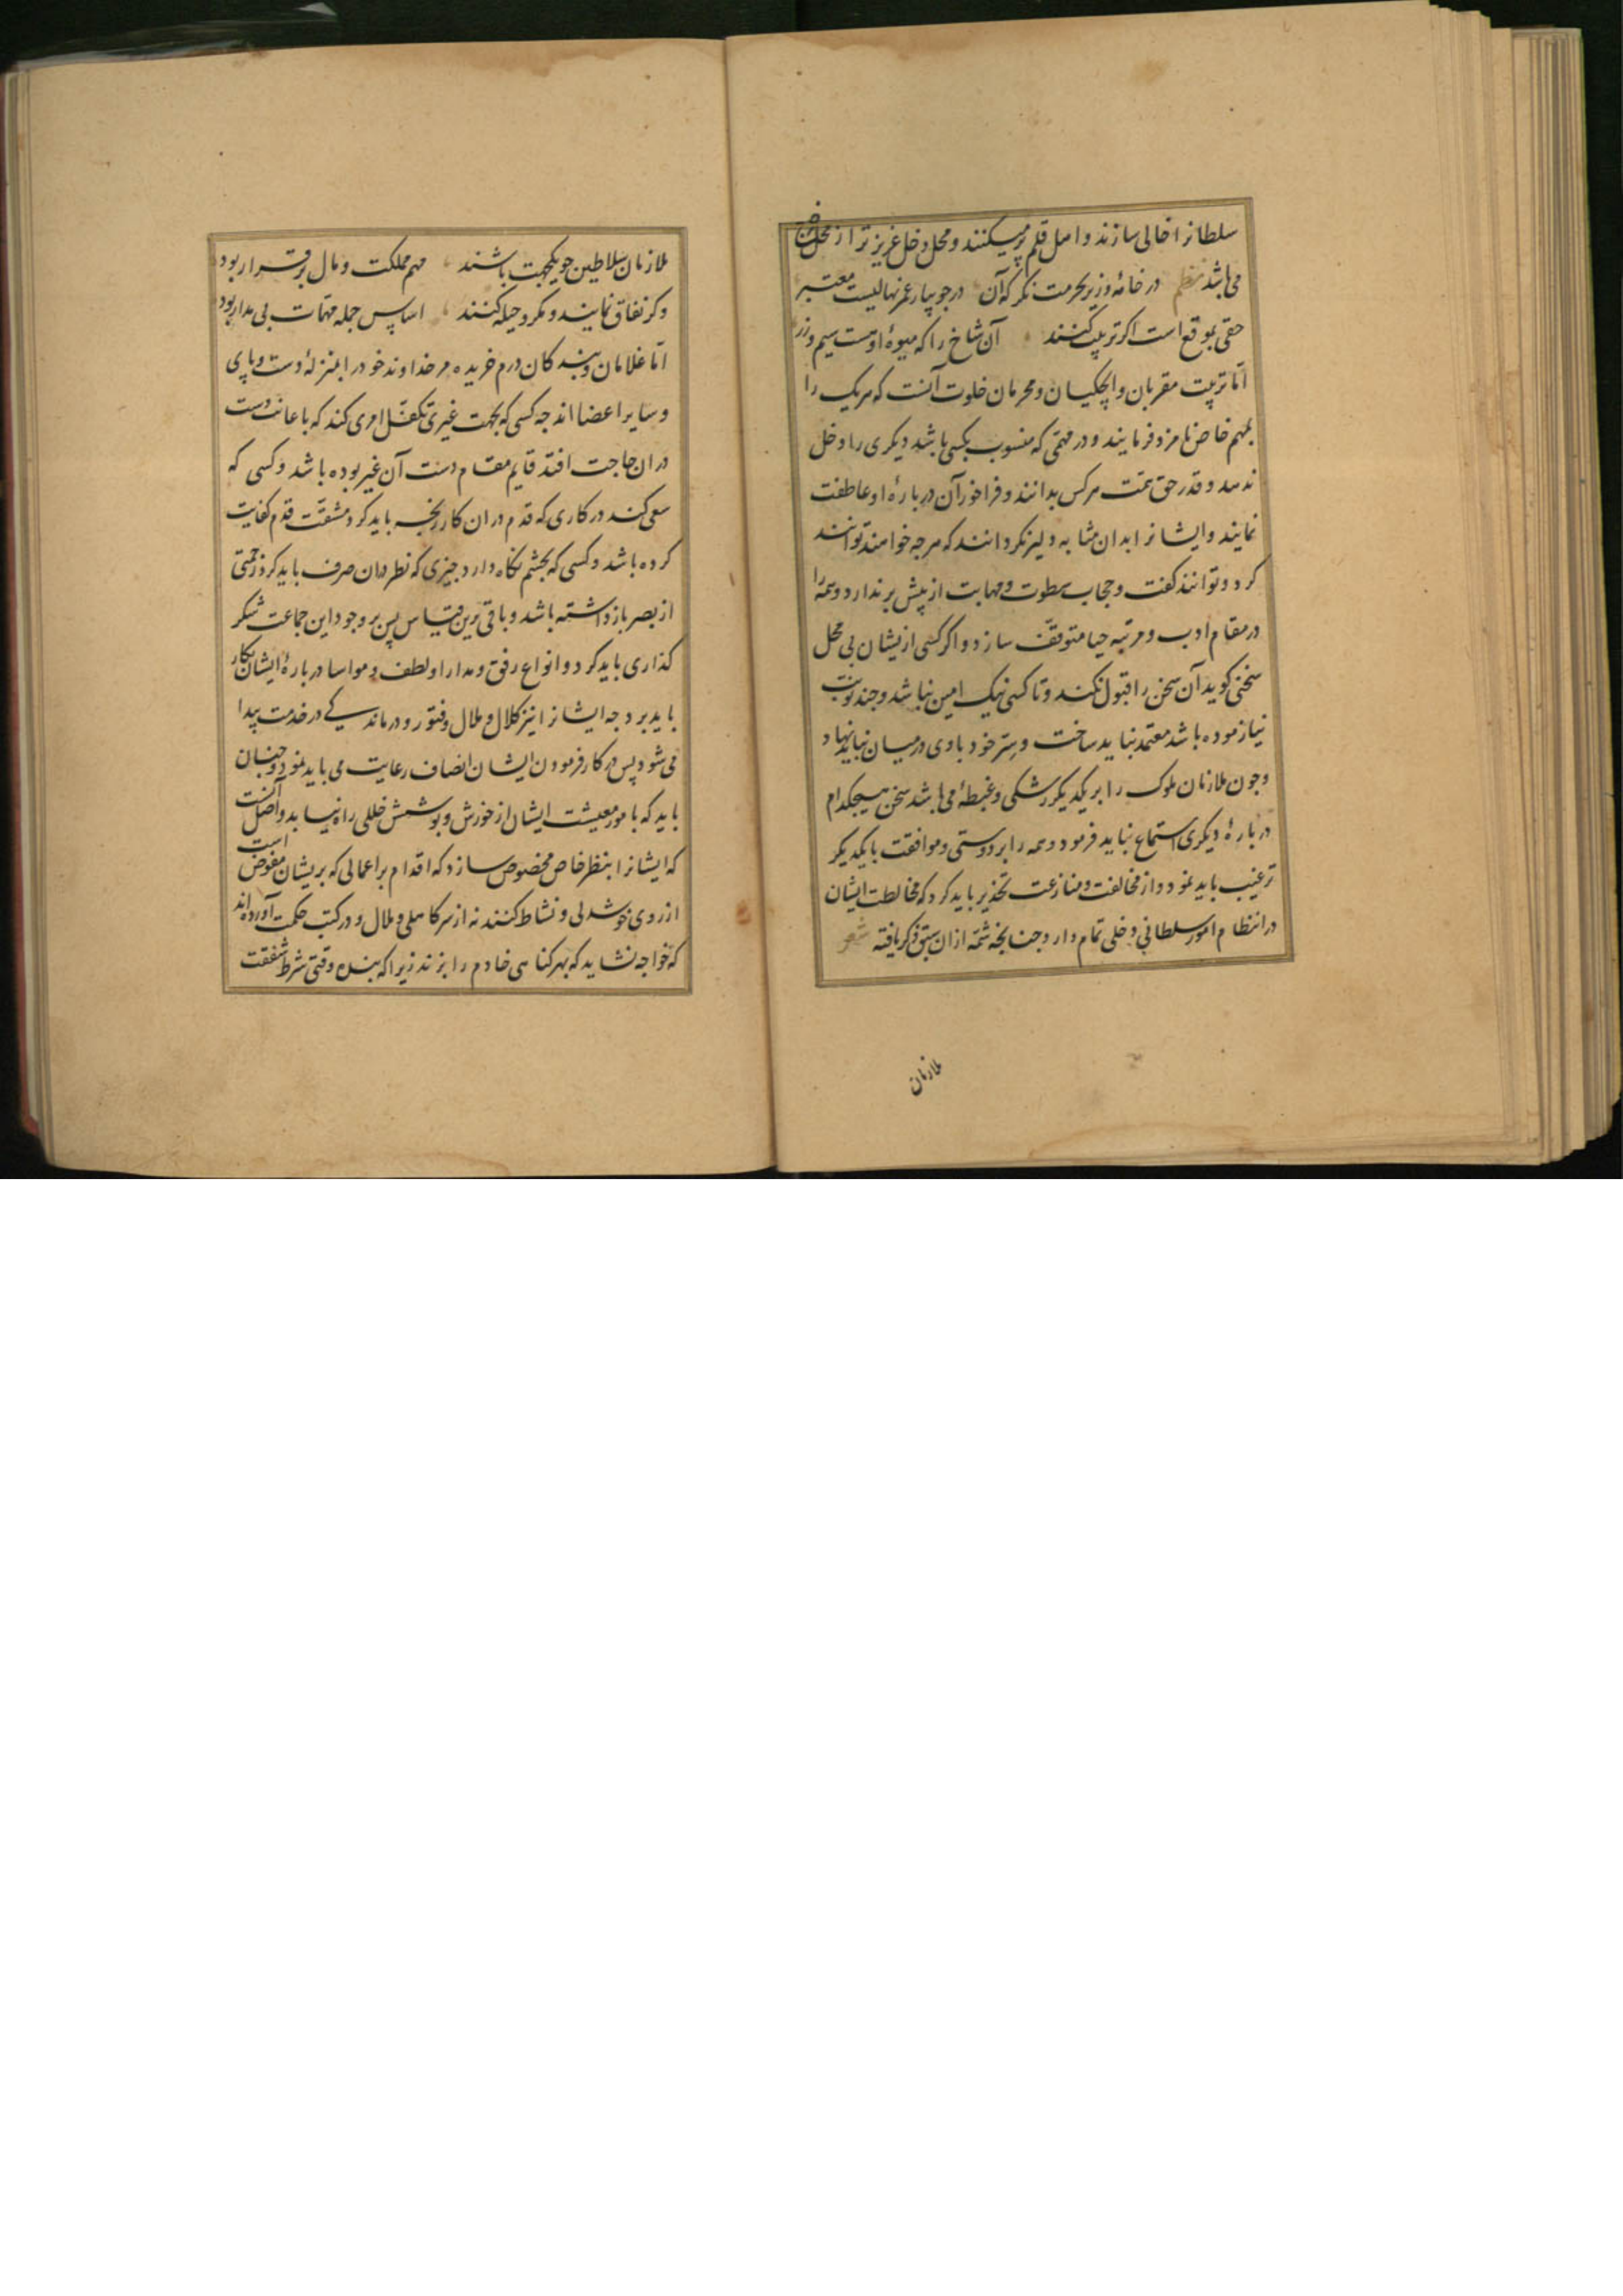 سلطانرا خالی سازند و اهل قلم پر میکنند و محل دخل عزیزتر از محل خرج
می باشد نظم در خانهٔ وزیر بحرمت نکر که آن در جویبار عمر نهالیست معتبر
حقی بموقع است اکر تربیت کنند آن شاخ را که میوهٔ اوست سیم و زر
امّا تربیت مقربان و ایچکیان و محرمان خلوت آنست که هر یک را
بمهم خاص نامزد فرمایند و در مهمّی که منسوب بکسی باشد دیکری را دخل
ندهند و قدر حق خدمت هر کس بدانند و فراخور آن در بارهٔ او عاطفت
نمایند و ایشانرا بدان مثابه دلیر نکردانند که هر چه خواهند توانند
کرد و توانند کفت و حجاب سطوت و مهابت از پیش بر ندارد و همه را
در مقام ادب و مرتبه حیا متوقّف سازد و اکر کسی ازیشان بی محل
سخنی کوید آن سخن را قبول نکند و تا کسی نیک امین نباشد و چند نوبت
نیازموده باشد معتمد نباید ساخت و سِرّ خود با وی در میان نباید نهاد
و چون ملازمان ملوک را بر یکدیکر رشکی و غبطهٔ می باشد سخن هیچکدام
در بارهٔ دیکری استماع نباید فرمود و همه را بر دوستی و موافقت با یکدیکر
ترغیب باید نمود و از مخالفت و منازعت تحذیر باید کرد که مخالطت ایشان
در انتظام امور سلطانی دخلی تمام دارد چنانچه شمّه ازان سبق ذکر یافته شعر
ملازمان
ملازمان سلاطین چو یکجهت باشند مهم مملکت و مال بر قرار بود
و کر نفاق نمایند و مکر و حیله کنند اساس جمله مهمّات بی مدار بود
امّا غلامان و بندکان درم خریده مر خداوند خود را بمنزلهٔ دست و پای
و سایر اعضا اند چه کسی که بجهت غیری تکفّل امری کند که باعانت دست
دران حاجت افتد قایم مقام دست آن غیر بوده باشد و کسی که
سعی کند در کاری که قدم دران کار رنجه باید کرد مشقّت قدم کفایت
کرده باشد و کسی که بچشم نکاه دارد چیزی که نظر دران صرف باید کرد زحمتی
از بصر باز داشته باشد و باقی برین قیاس پس بر وجود این جماعت شکر
کذاری باید کرد و انواع رفق و مدارا و لطف و مواسا در بارهٔ ایشان بکار
باید برد چه ایشانرا نیز کلال و ملال و فتور و درماندکی در خدمت پیدا
می شود پس در کار فرمودن ایشان انصاف رعایت می باید نمود و چنان
باید که بامور معیشت ایشان از خورش و پوشش خللی راه نیابد و اصل آنست
که ایشانرا بنظر خاص مخصوص سازد که اقدام بر اعمالی که بریشان مفوّض است
از روی خوشدلی و نشاط کنند نه از سر کاهلی و ملال و در کتب حکمت آورده اند
که خواجه نشاید که بهر کناهی خادم را بزند زیرا که بنده وقتی شرط شفقت